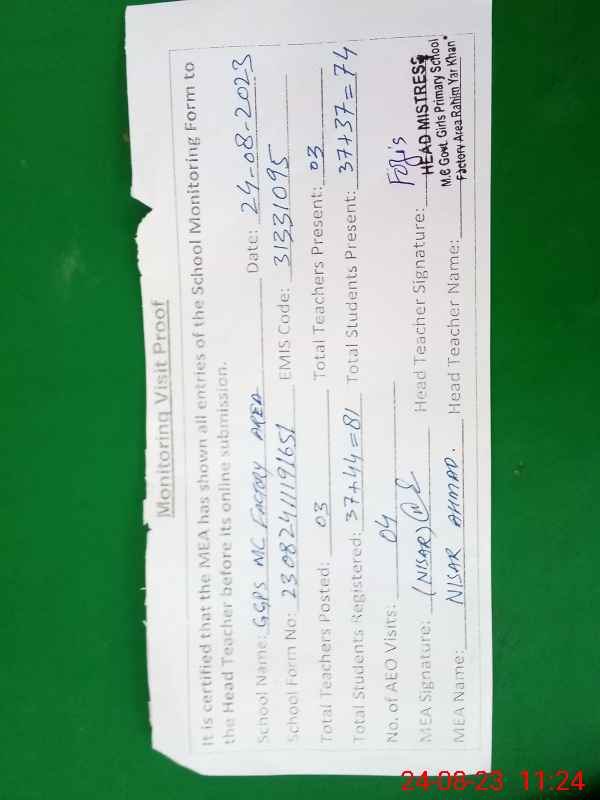 Monitoring Visit Proof
It is certified that the MEA has shown all entries of the School Monitoring Form to
the Head Teacher before its online submission.
School Name: GGPS MC FACTORY AREA Date: 24-08-2023
School Form No: 23082411191651 EMIS Code: 31331095
Total Teachers Posted: 03 Total Teachers Present: 03
Total Students Registered: 37+44=81 Total Students Present: 37+37=74
No. of AEO Visits: 04
MEA Signature: (NISAR) Head Teacher Signature:
HEAD MISTRESS
M.C Govt. Girls Primary School
Factory Area Rahim Yar Khan
MEA Name: NISAR AHMAD. Head Teacher Name:
24-08-23 11:24